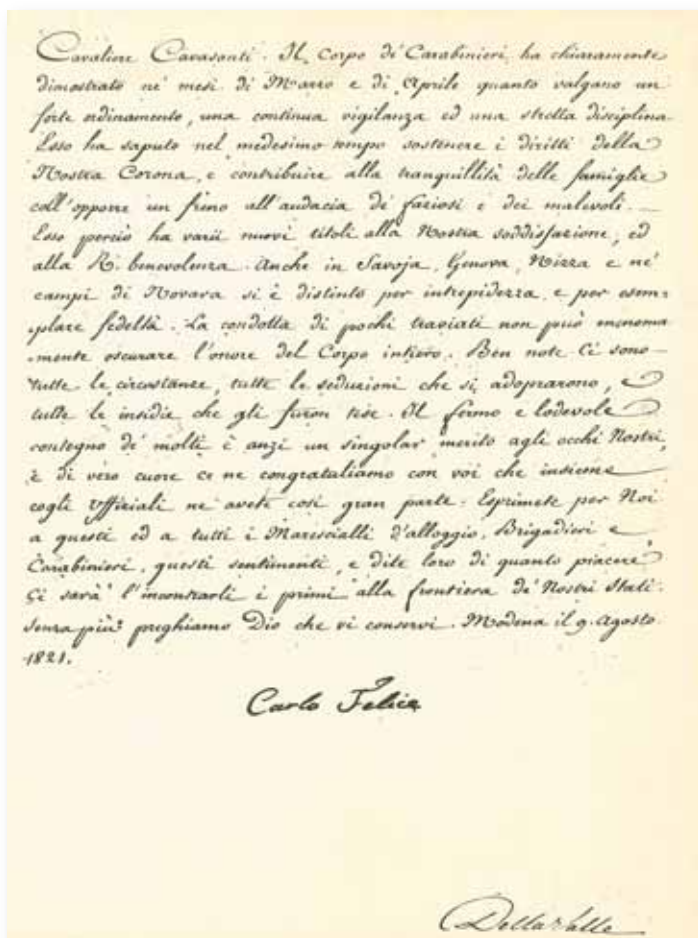 Cavaliere Cavasanti. Il Corpo de' Carabinieri ha chiaramente
dimostrato ne' mesi di Marzo e di Aprile quanto valgano un
forte ordinamento, una continua vigilanza ed una stretta disciplina
Esso ha saputo nel medesimo tempo sostenere i diritti della
Nostra Corona, e contribuire alla tranquillità delle famiglie
coll'opporre un freno all'audacia de' faziosi e dei malevoli.
Esso perciò ha varii nuovi titoli alla Nostra soddisfazione, ed
alla R. benevolenza. Anche in Savoja, Genova, Nizza e ne'
campi di Novara si è distinto per intrepidezza, e per esem=
=plare fedeltà. La condotta di pochi traviati non può menoma
=mente oscurare l'onore del Corpo intiero. Ben note Ci sono
tutte le circostanze, tutte le seduzioni che si adoprarono, e
tutte le insidie che gli furon tese. Il fermo e lodevole
contegno de' molti è anzi un singolar merito agli occhi Nostri,
e di vero cuore ce ne congratuliamo con voi che insieme
cogli Uffiziali ne avete così gran parte. Esprimete per Noi
a questi ed a tutti i Marescialli d'alloggio, Brigadieri e
Carabinieri, questi sentimenti, e dite loro di quanto piacere
Ci sarà l'incontrarli i primi alla frontiera de' Nostri Stati.
Senza più preghiamo Dio che vi conservi. Modena il 9. Agosto
1821.
Carlo Felice
Della Valle